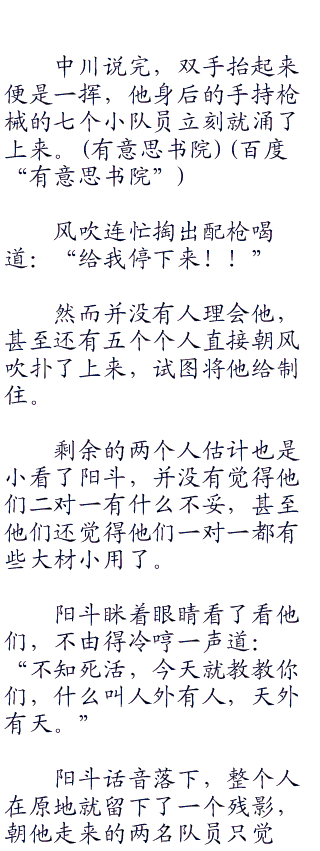 中川说完，双手抬起来
便是一挥，他身后的手持枪
械的七个小队员立刻就涌了
上来。(有意思书院)(百度
“有意思书院”)
风吹连忙掏出配枪喝
道：“给我停下来！！”
然而并没有人理会他，
甚至还有五个个人直接朝风
吹扑了上来，试图将他给制
住。
剩余的两个人估计也是
小看了阳斗，并没有觉得他
们二对一有什么不妥，甚至
他们还觉得他们一对一都有
些大材小用了。
阳斗眯着眼睛看了看他
们，不由得冷哼一声道：
“不知死活，今天就教教你
们，什么叫人外有人，天外
有天。”
阳斗话音落下，整个人
在原地就留下了一个残影，
朝他走来的两名队员只觉